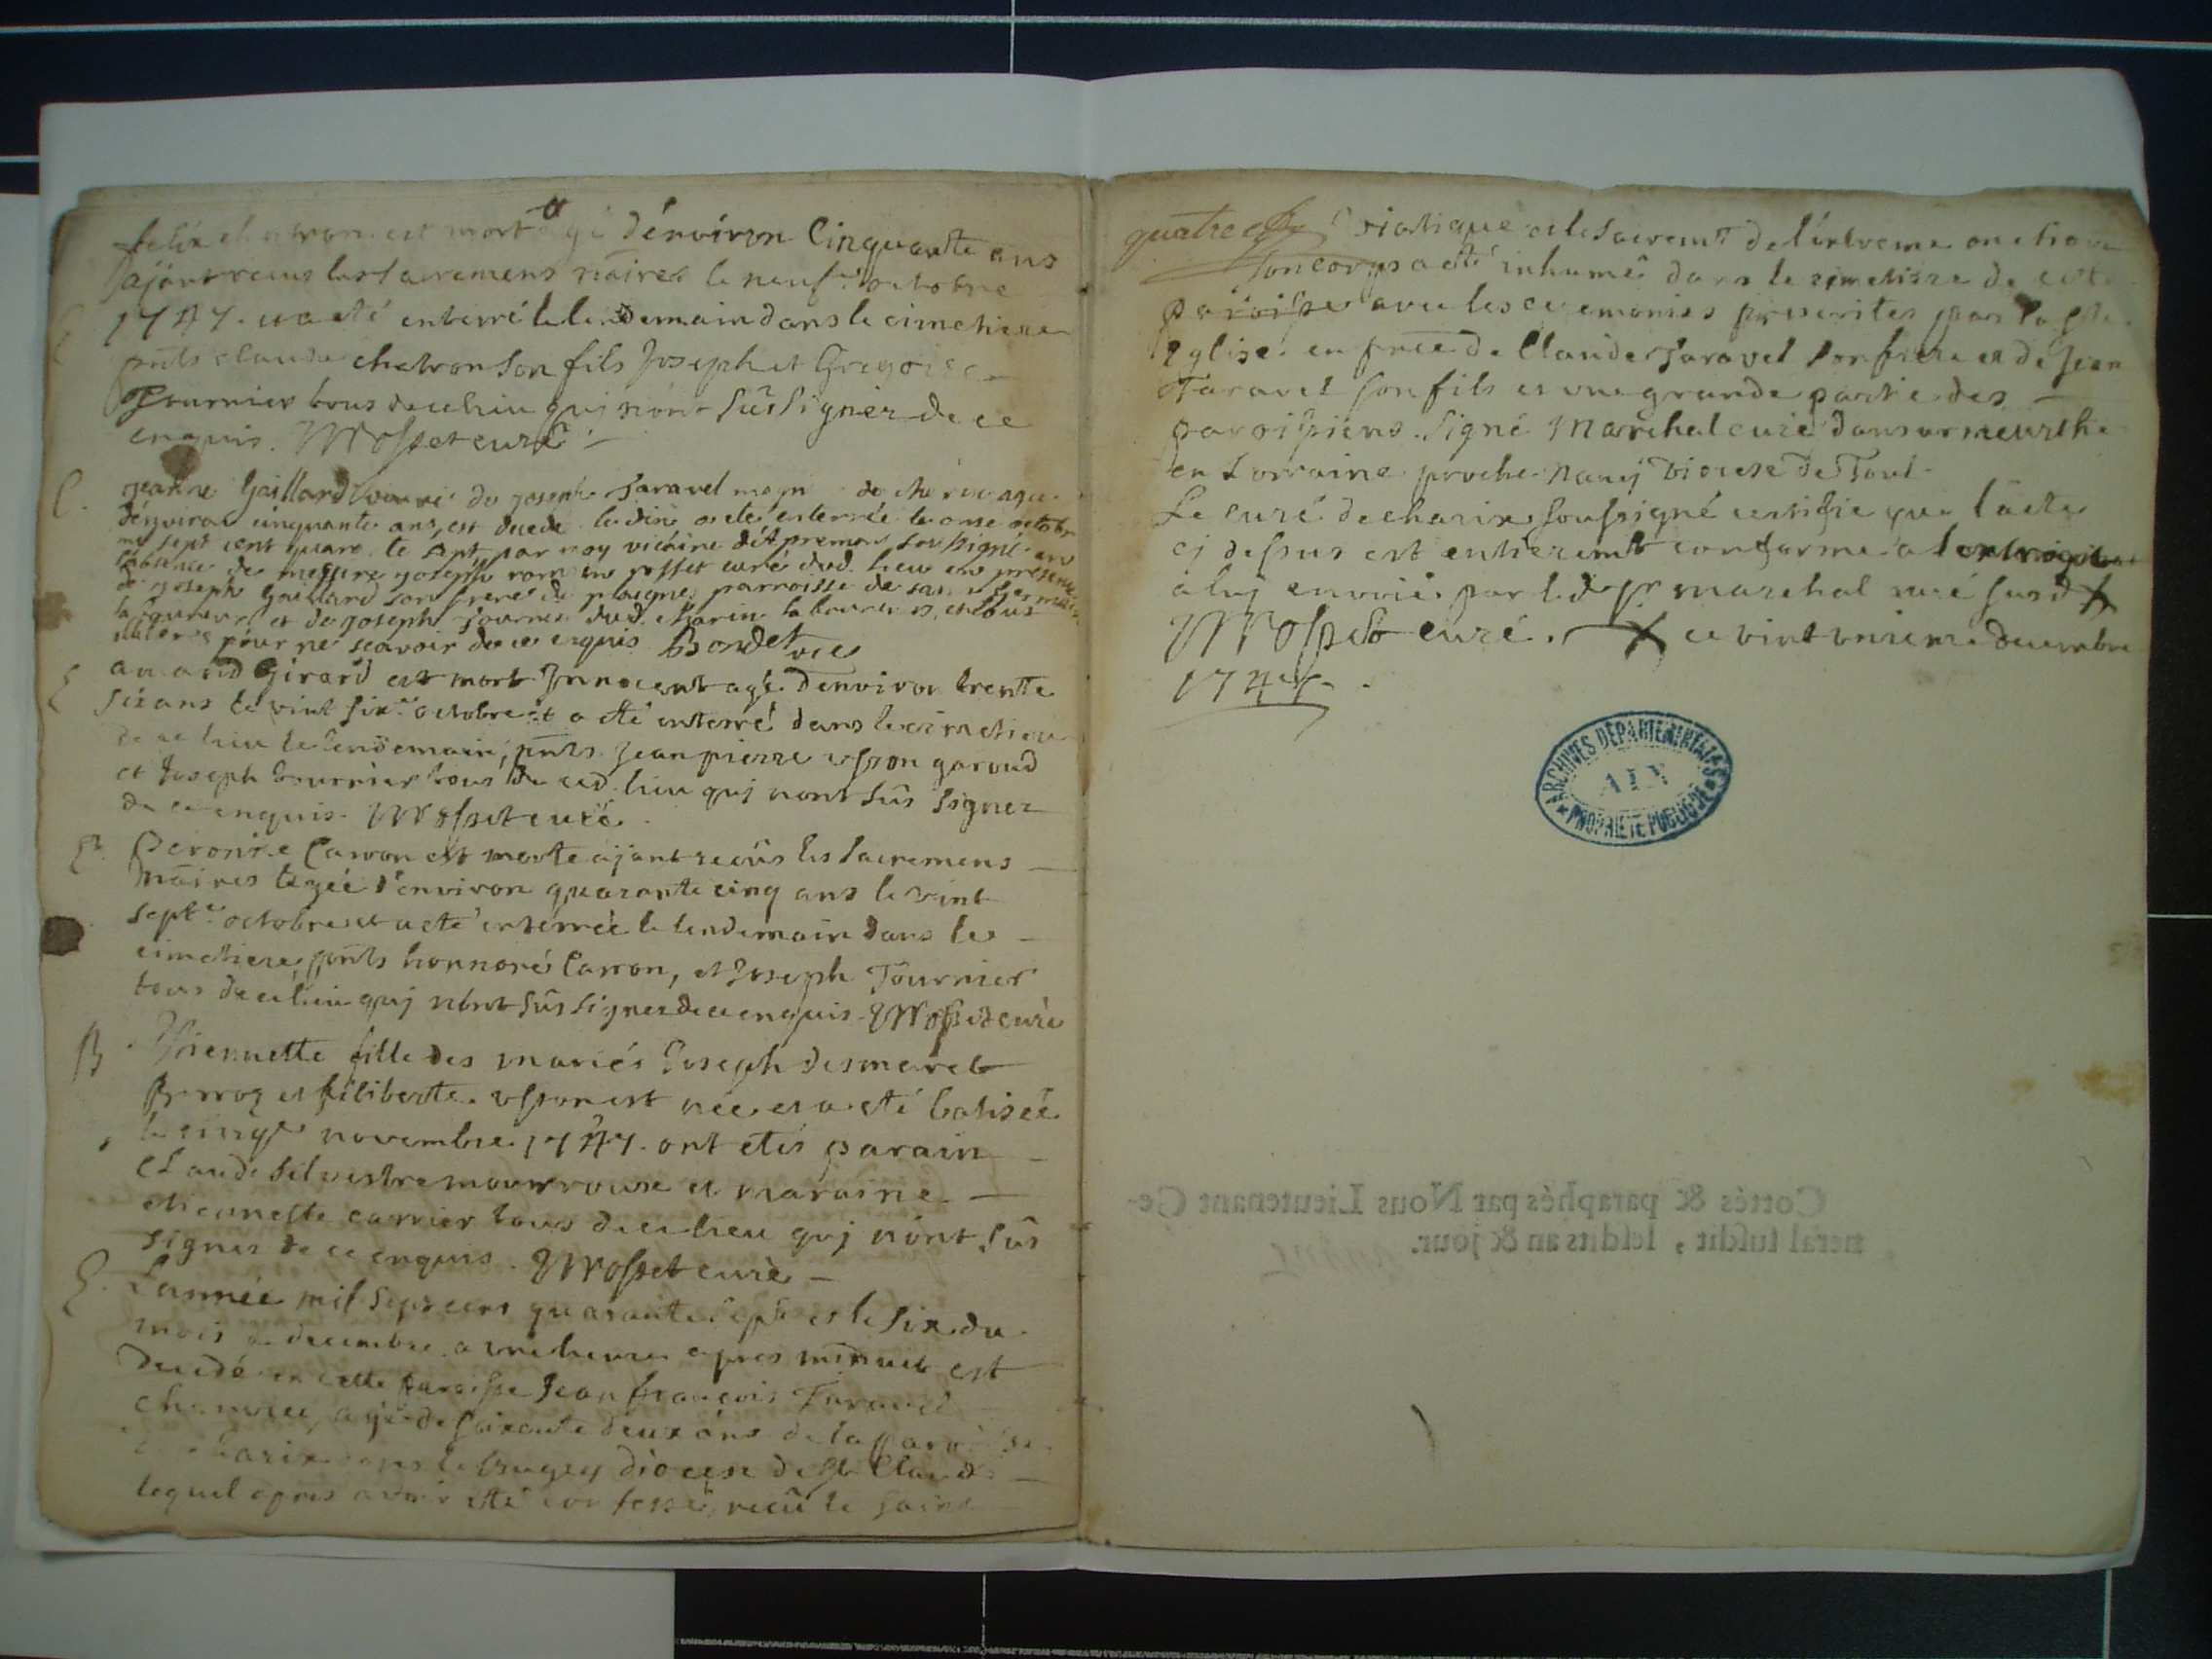 felix chatron est mort agé d'environ Cinquante ans
ajant recus les sacremens nräires le neufe octobre
1747. et a eté enterré le lendemain dans le cimetiere
pnts claude chatron son fils Joseph et Gregoire
Tournier tous de ce lieu qui n'ont sûs signer de ce
enquis. Mosset curé
jeanne Gaillard veuve de joseph Taravel agée
d'environ cinquante ans, est decede le dix a eté enterrée le onse octobre
mil sept cent quarante sept par moy vicaire d'étpremont soussigné en
l'absence de messire joseph romain mosset curé dud. lieu en presence
de joseph Gaillard son frere de plagnes parroisse de saint germain
laboureur et de joseph journet dud. charix laboureurs, tous
illiteres pour ne scavoir de ce enquis Bondet vic
amand Girard est mort Innocent agé d'environ trente
six ans le vint sixe octobre et a eté enterré dans le cimetiere
de ce lieu le lendemain, pnts. jean pierre usson garoud
et Joseph tournier tous de ced. lieu qui nont sûs signer
de ce enquis. Mosset curé.
Peronne Carron est morte ajant recûs les sacremens
nräires agée d'environ quarante cinq ans le vint
septe octobre et a eté enterrée le lendemain dans le
cimetiere, pnts honnoré Carron, et Joseph Tournier
tous de ce lieu quj n'ont sûs signer de ce enquis. Mosset curé
B. Thiennette fille des mariés Joseph desmaret
perroz et philiberte usson est née et a eté batisée
le cinqe novembre 1747. ont etés parain
Claude silvestre mourroux et maraine
etiennette carrier tous de ce lieu quj n'ont sûs
signer de ce enquis. Mosset curé
L'année mil sept cens quarante sept et le six du
mois de decembre a une heure apres minuit est
decedé en cette paroisse Jean françois Taravel
agé de soixante deux ans de la paroisse
de charix dans le bugey diocese de st Claude
lequel apres avoir eté confessé, recû le saint
quatre viatique et le sacremt de l'extreme onction
son corps a eté inhumé dans le cimetiere de cette
paroisse avec les ceremonies prescrites par la ste
Eglise. en pnce de Claude Taravel son frere et de Jean
Taravel son fils et une grande partie des
paroissiens. signé Marchal curé dans art meurthe
en Lorraine proche nancj Diocese de Toul.
Le curé de charix soussigné certifie que l'acte
cj dessus est entieremt conforme a l'extrait
a luj envoié par led. sr marchal curé susd
Mosset curé. ce vint unieme decembre
1747.
ARCHIVES DEPARTEMENTALES
AIN
PROPRIETE PUBLIQUE
Cottés & paraphés par Nous Lieutenant Ge-
neral susdit, lesdits an & jour.